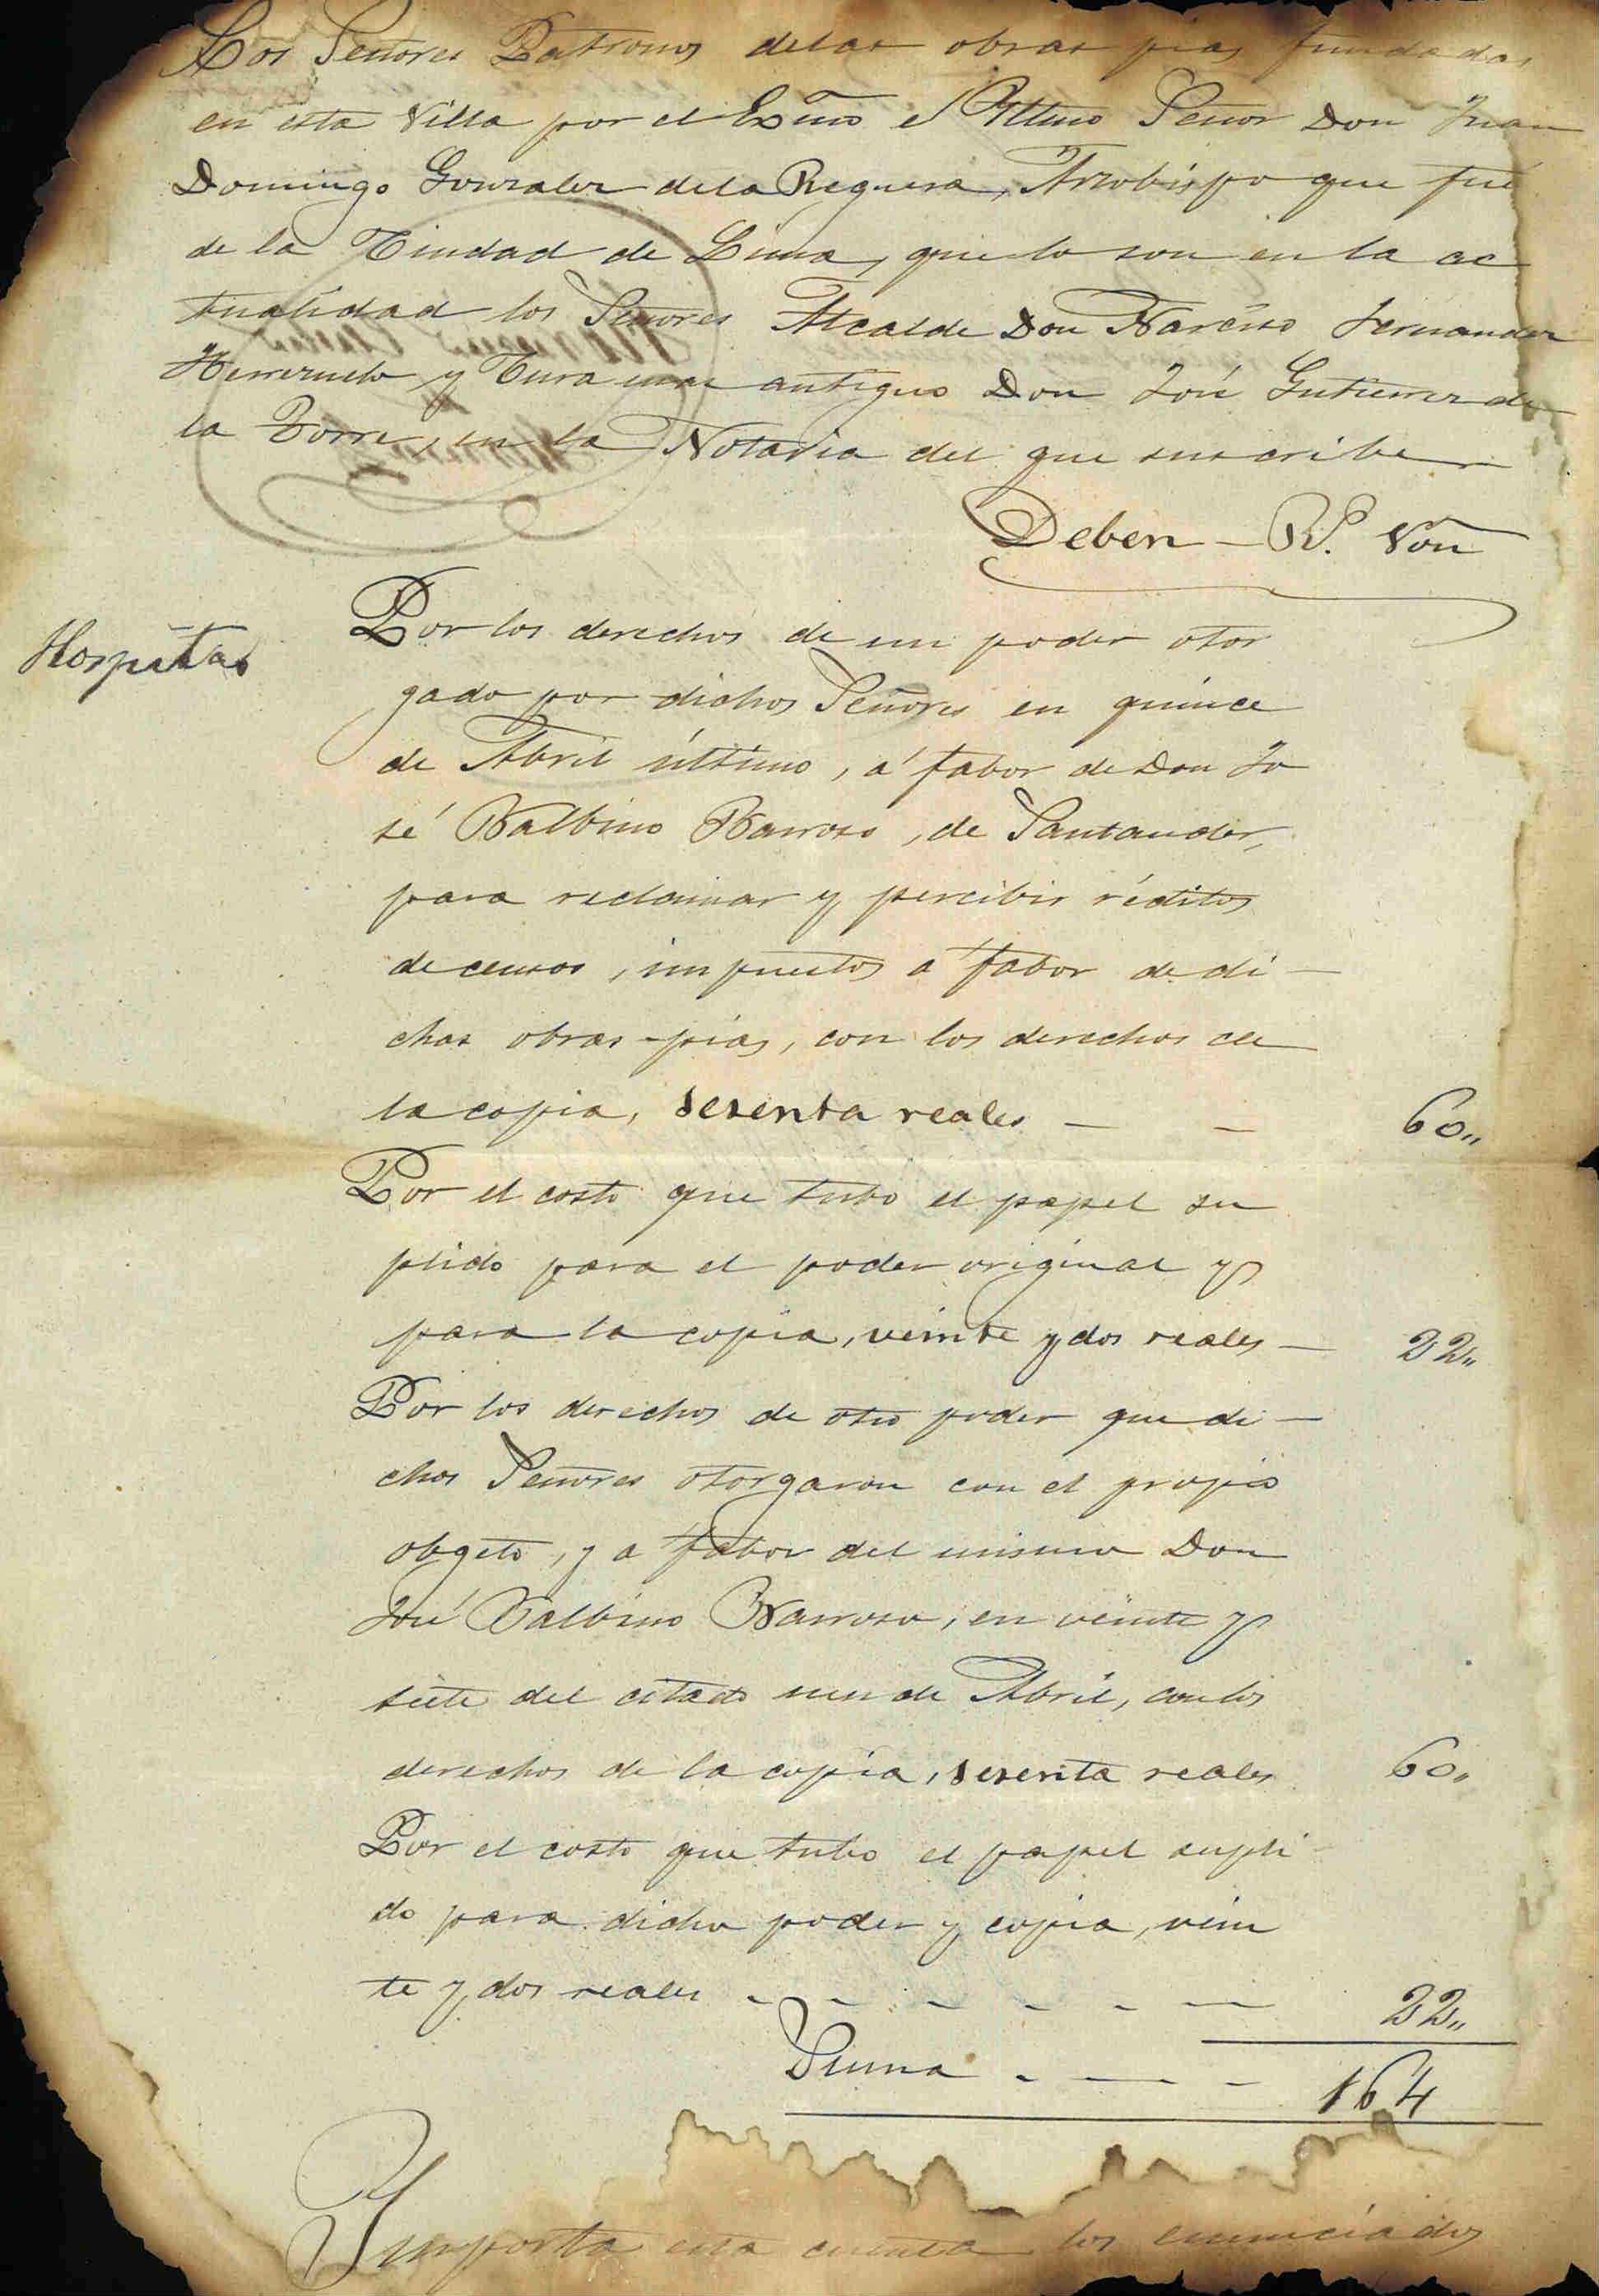 Los Señores Patronos delas obras pias fundadas
en esta Villa por el Exmo é Illmo Señor Don Juan
Domingo Gonzalez dela Reguera, Arzobispo que fué
de la Ciudad de Lima, que lo son en la ac
tualidad los Señores Alcalde Don Narciso Fernandez
Herrezuelo y Cura mas antiguo Don José Gutierrez de
la Torre, en la Notaria del que suscribe
Deben - Rs. Von
Hospital
Por los derechos de un poder otor
gado por dichos Señores en quince
de Abril último, á fabor de Don Jo
sé Balbino Barroso, de Santander,
para reclamar y percibir réditos
de censos, impuestos á fabor de di-
chas obras-pias, con los derechos de
la copia, sesenta reales - - 60"
Por el costo que tubo el papel su
plido para el poder original y
para la copia, veinte y dos reales - 22"
Por los derechos de otro poder que di-
chos Señores otorgaron con el propio
obgeto, y a fabor del mismo Don
José Balbino Barroso, en veinte y
siete del citado mes de Abril, con los
derechos de la copia, sesenta reales 60"
Por el costo que tubo el papel supli
do para dicho poder y copia, vein
te y dos reales - - - - - - 22"
Suma - - - 164
Importa esta cuenta los enunciados